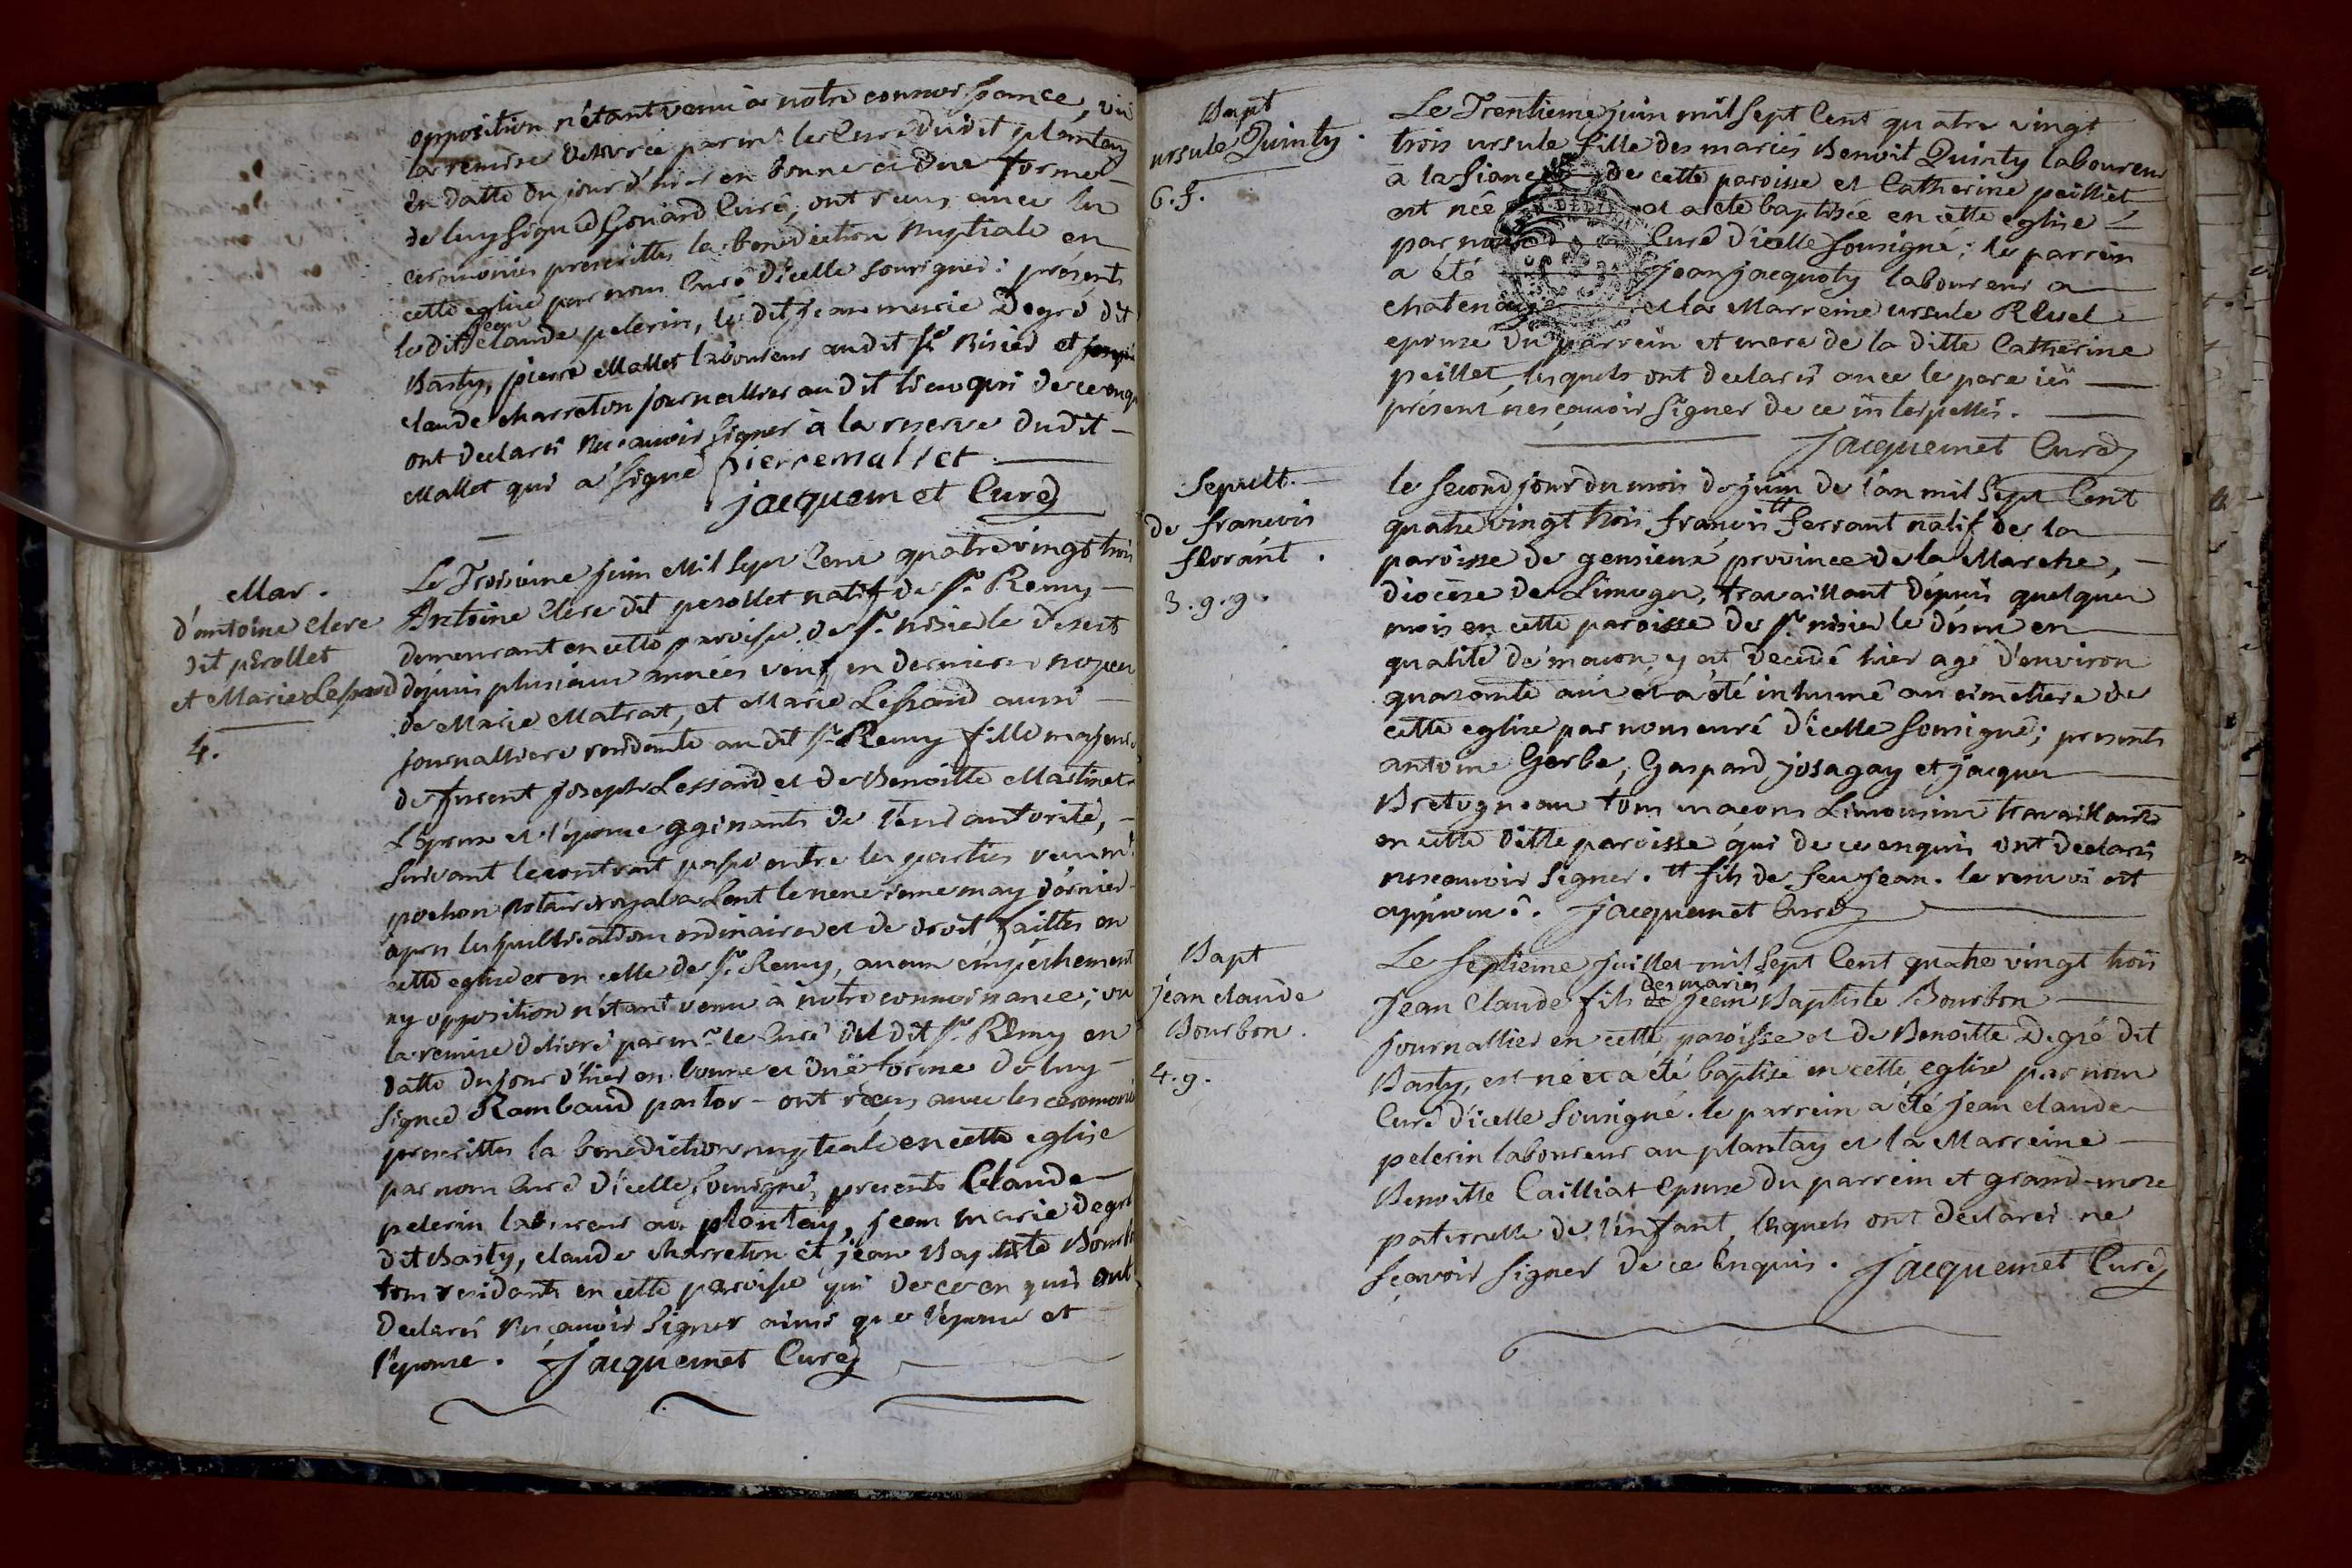 opposition n'étant venu à notre connoissance, vu
la remise délivrée par mr le Curé dudit plantay
en datte du jour d'hier en bonne et due forme
de luy signé Goiard Curé, ont reçus avec les
ceremonies prescrittes la benediction nuptiale en
cette eglise par nous Curé d'icelle sousigné: présents
le dit jean claude pelerin, le dit jean marie Degré dit
Basty, pierre Mallet laboureur audit St Nisier et
claude charreton journallier audit lieu qui de ce enquis
ont declarés ne sçavoir signer à la reserve dudit
Mallet qui a signé pierre mallet
jacquemet Curé
Mar.
d'antoine clere
dit pérollet
et Marie Lessard
4.
Le Troisième juin Mil Sept Cent quatre vingt trois
Antoine Clere dit perollet natif de St Remy
demeurant en cette paroisse de St nisier le desert
depuis plusieurs années veuf en dernieres nopces
de Marie Matrat, et Marie Lessard aussi
journalliere residente audit St Remy fille majeure
de furent joseph Lessard et de Benoitte Martinet
L'epoux et l'epouse aginants de leur autorité,
suivant le contrat passé entre les parties reçu mr
pochon Notaire royal a Lent le neuvieme may dernier
apres les publications ordinaires et de droit faittes en
cette eglise et en celle de St Remy, aucun empéchement
ny opposition n'étant venu à notre connoissance; vu
la remise delivré par mr le Curé du dit St Rémy en
datte du jour d'hier en bonne et düe forme de luy
signed Rambaud pastor - ont reçus avec les ceremonies
prescrittes la benediction nuptiale en cette eglise
par nous Curé d'icelle sousigné, presents Claude
pelerin laboureur au plantay, jean marie degré
dit Basty, claude charreton et jean Baptiste Bourbon
tous residants en cette paroisse qui de ce enquis ont
Declarés ne sçavoir signer ainsi que l'epoux et
l'epouse. Jacquemet Curé
Bapt
ursule Quinty.
6.f.
Le Trentieme juin mil Sept Cent quatre vingt
trois ursule fille des mariés Benoit Quinty laboureur
a la de cette paroisse et Catherine peilliet
est née et a eté baptisée en cette eglise
par nous Curé d'icelle sousigné; le parrein
a été jean jacquoty laboureur a
chatenay et la Marreine ursule Rluel
epouse du parrein et mere de la ditte Catherine
peillet, lesquels ont declarés avec le pere ici
présent ne sçavoir signer de ce interpellés.
Jacquemet Curé
Sepult.
de francois
ferrant.
3.g.g.
le second jour du mois de juin de l'an mil Sept Cent
quatre vingt trois françois tt ferrant natif de la
paroisse de gensieux province de la Marche,
diocèse de Limoges, travaillant dépuis quelques
mois en cette paroisse de St nisier le désert en
qualité de maçon, y est decedé hier agé d'environ
quarante ans et a été inhumé au cimetiere de
cette eglise par nous curé d'icelle sousigné; presents
antoine Gerbe, Gaspard josagay et jacques
Bretogneau tous maçons Limousins travaillants
en cette ditte paroisse qui de ce enquis ont declarés
ne sçavoir signer. tt fils de feu jean. le renvoi est
approuvé. jacquemet Curé
Bapt
jean claude
Bourbon.
4.g.
Le Septieme juillet mil Sept Cent quatre vingt trois
des mariés
Jean Claude fils de jean Baptiste Bourbon
journallier en cette paroisse et de Benoitte Degré dit
Basty, est né et a été baptisé en cette eglise par nous
Curé d'icelle sousigné. le parrein a été jean claude
pelerin laboureur au plantay et la Marreine
Benoitte Cailliat epouse du parrein et grand-mere
paternelle de l'enfant, lesquels ont declarés ne
sçavoir signer de ce Enquis. Jacquemet Curé